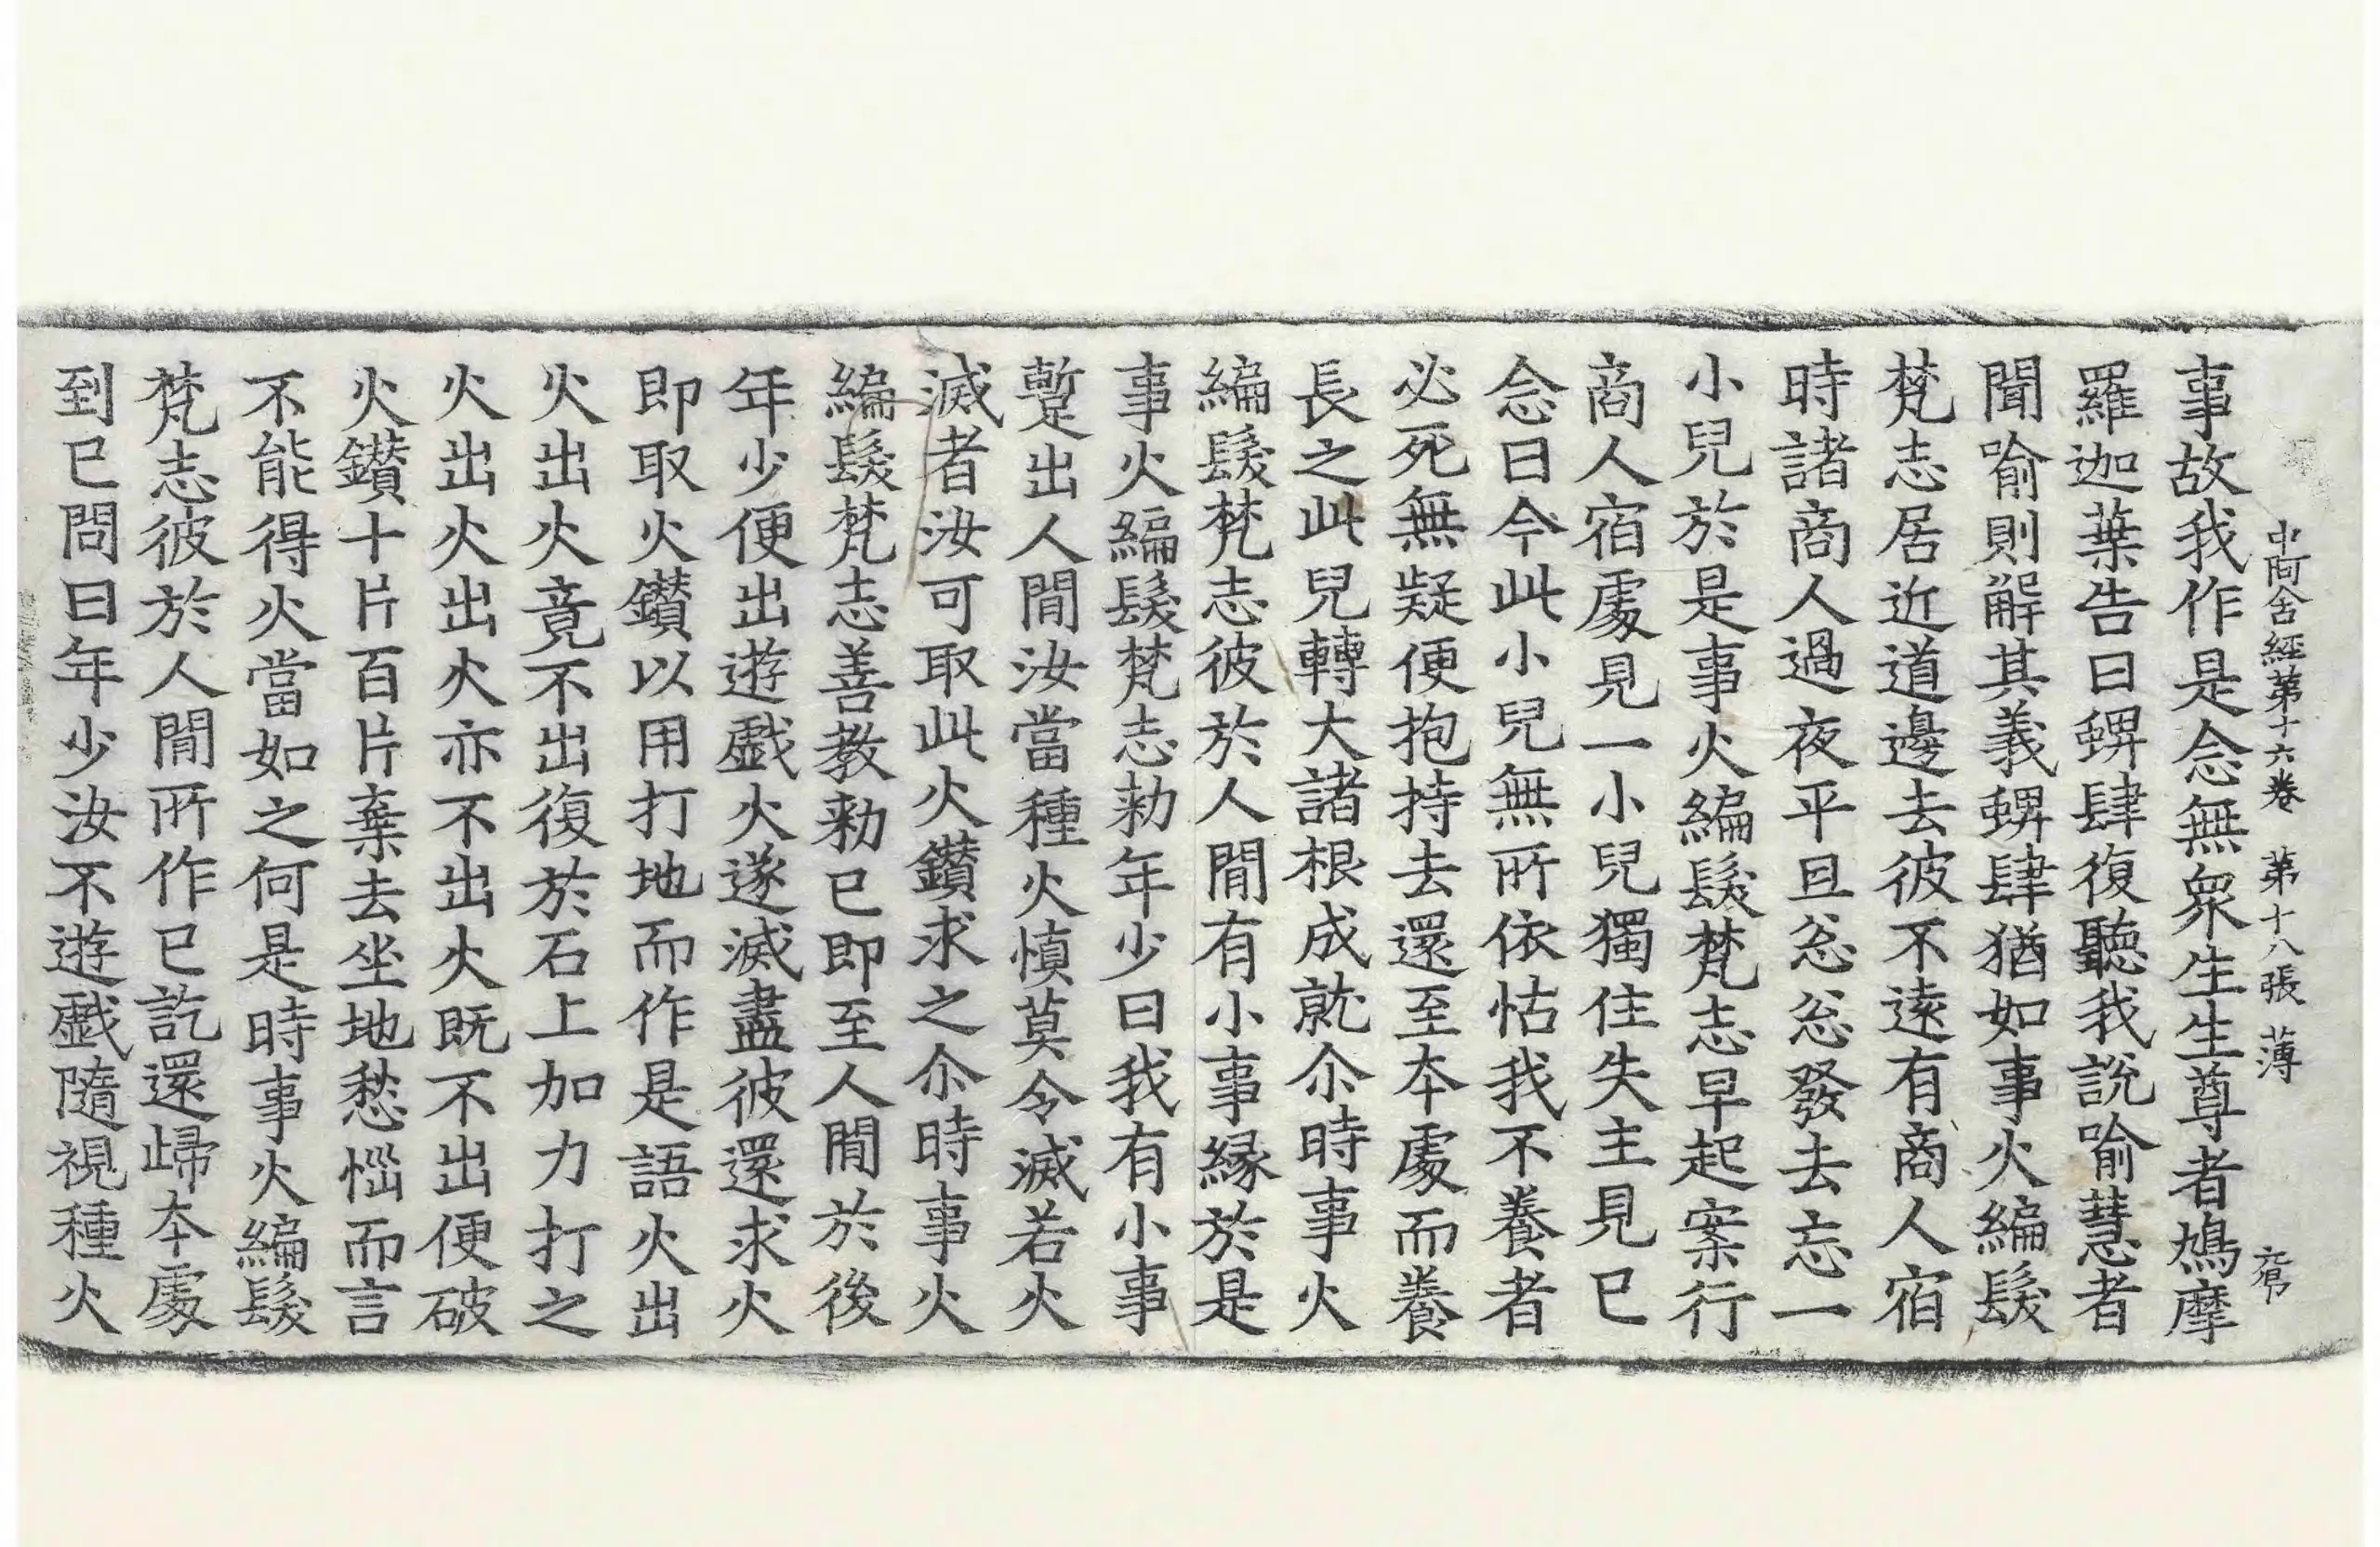 中阿含經第十六卷 第十八張 薄
事故我作是念無眾生生尊者鳩摩
羅迦葉告曰蜱肆復聽我說喻慧者
聞喻則解其義蜱肆猶如事火編髮
梵志居近道邊去彼不遠有商人宿
時諸商人過夜平旦忩忩發去忘一
小兒於是事火編髮梵志早起案行
商人宿處見一小兒獨住失主見已
念曰今此小兒無所依怙我不養者
必死無疑便抱持去還至本處而養
長之此兒轉大諸根成就尒時事火
編髮梵志彼於人間有小事緣於是
事火編髮梵志勑年少曰我有小事
蹔出人間汝當種火慎莫令滅若火
滅者汝可取此火鑽求之尒時事火
編髮梵志善教勑已即至人間於後
年少便出遊戲火遂滅盡彼還求火
即取火鑽以用打地而作是語火出
火出火竟不出復於石上加力打之
火出火出火亦不出火既不出便破
火鑽十片百片棄去坐地愁惱而言
不能得火當如之何是時事火編髮
梵志彼於人間所作已訖還歸本處
到已問曰年少汝不遊戲隨視種火